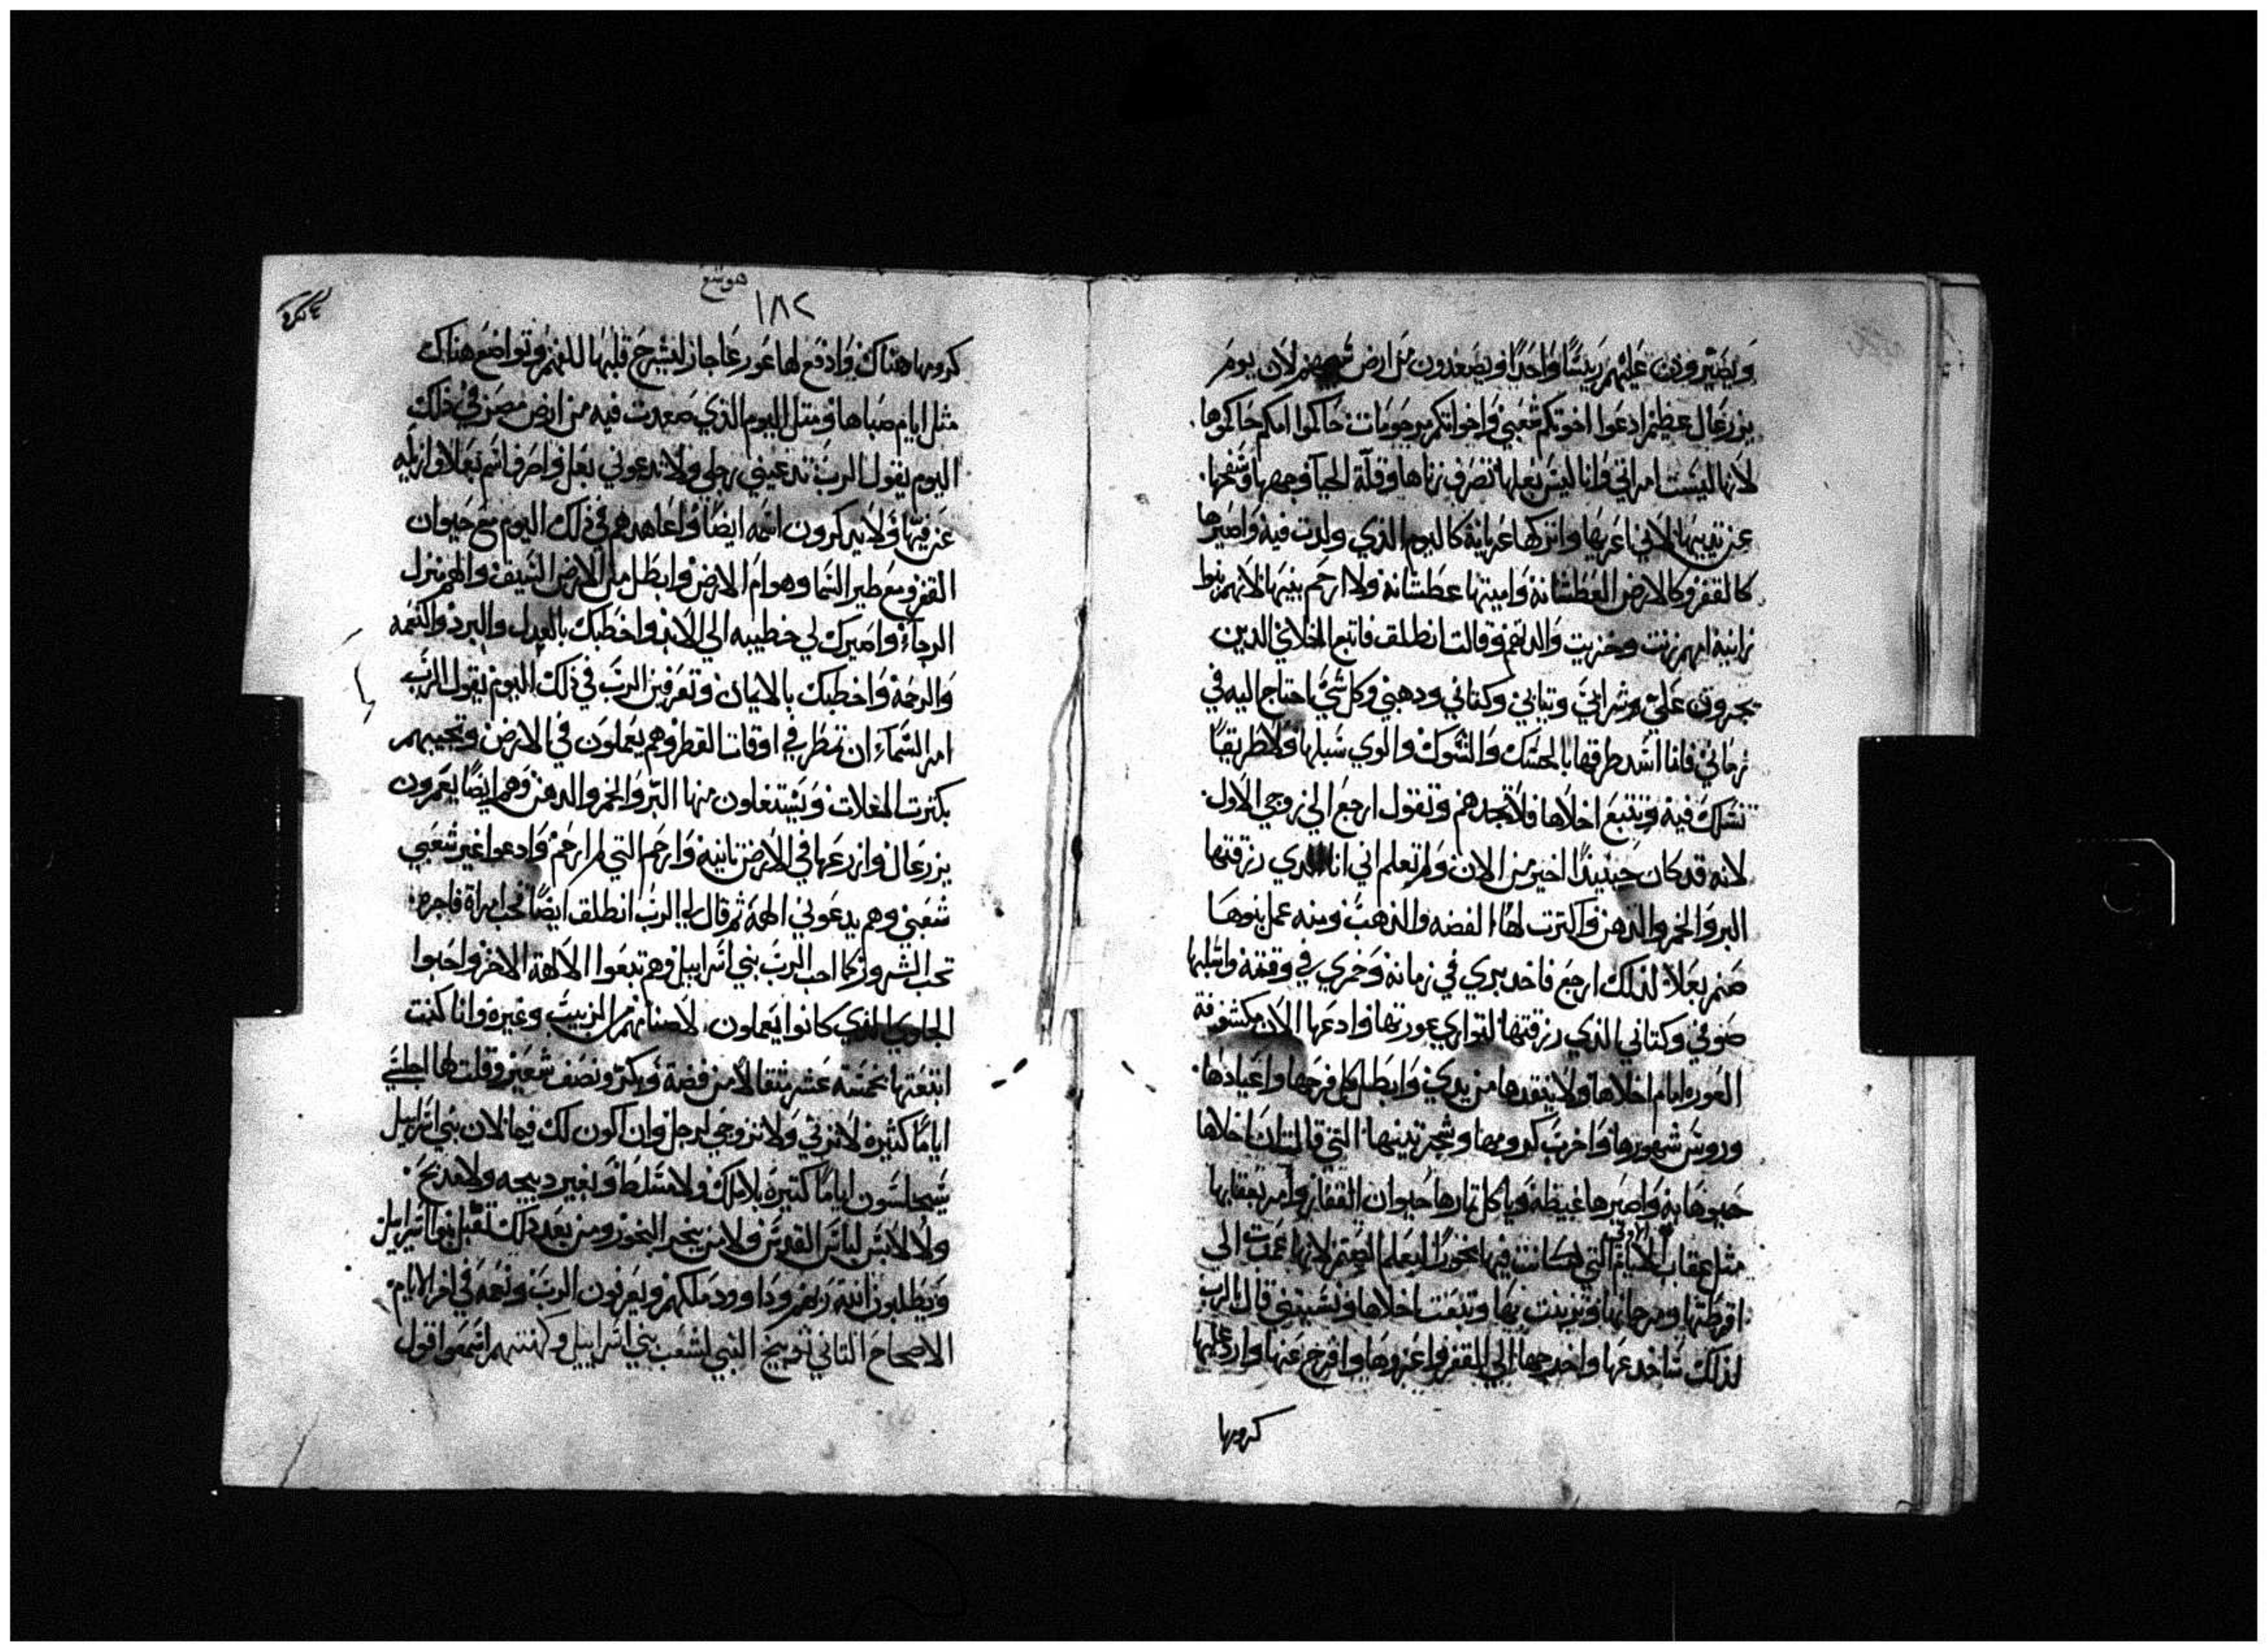 ويصيرون عليهم رييسًا واحدًا ويصعدون من ارض لان يوم
يزرعال عظيم ادعوا اخوتكم شعبي واخواتكم مرحومات حاكموا امكم حاكموها
لانها ليست امراتي وانا ليس بعلها تصرف زناها وقلة الحيا وجهها وفسقها
عن تدييها لاني اعريها واتركها عريانة كاليوم الذي ولدت فيه واصيرها
كالقفر وكالارض العطشانة واميتها عطشانة ولا ارحم بنيها لانهم بنوا
زانية امهم زنت وخزيت والدتهم وقالت انطلق فاتبع اخلاني الدين
يجرون علي وشرابي وتيابي وكتاني ودهني وكل شي احتاج اليه في
زماني فانا اسد طرقها بالحسك والشوك والوي سبلها ولا طريقًا
تسلك فيه وتتبع اخلاها فلا تجدهم وتقول ارجع الي زوجي الاول
لانه قد كان حينيدًا اخير من الان ولم تعلم اني انا الدي رزقتها
البر والخمر والدهن واكترت لها الفضه والدهب ومنه عمل بنوها
صنم بعلا لذلك ارجع فاخد بري في زمانه وخمري في وقته واسلبها
صوفي وكتاني الذي رزقتها لتواري عورتها وادعها الان مكشوفة
العوره امام اخلاها ولا ينقدها من يدي وابطل كل فرحها واعيادها
وروس شهورها واخرب كرومها وشجر تينها التي قالت ان اخلاها
حبوها به واصيرها غيظه وياكل تمارها حيوان القفار وامر بعقابها
مثل عقاب الايام الاولي التي كانت فيها بخورًا لبعلم الصنم لانها عمدت الي
اقرطتها ومرجانها وتزينت بها وتبعت اخلاها ونسيتني قال الرب
لذلك ساخدعها واخرجها الي القفر واعزوها وافرج عنها وارد عليها
كرومها
هوشع
١٨٢
كرومها هناك وادفع لها غور عاجاز لينشرح قلبها للفهم وتواضع هناك
مثل ايام صباها ومتل اليوم الذي صعدت فيه من ارض مصر في ذلك
اليوم يقول الرب تدعيني رجلي ولا تدعوني بعل واصرف اسم بعلا وازيله
عن فيها ولا يدكرون اسمه ايضًا واعاهدهم في ذلك اليوم مع حيوان
القفر ومع طير السما وهوام الارض وابطل من الارض السيف والهم منزل
الرجاء واصيرك لي خطيبه الي الابد واخطبك بالعدل والبر والنعمه
والرحمة واخطبك بالايمان وتعرفين الرب في ذلك اليوم يقول الرب
امر السماء ان تمطر في اوقات القطر وهم يعملون في الارض وتجيبهم
بكترت الغلات ويستغلون منها البر والخمر والدهن وهم ايضًا يعمرون
يزرعال وازرعها في الارض تانيه وارحم التي لم ارحم وادعوا غير شعبي
شعبي وهم يدعوني الهه ثم قال لي الرب انطلق ايضًا فحب امراة فاجره
تحب الشرور كما احب الرب بني اسراييل وهم تبعوا الالهة الاخر واحبوا
الجلوي الذي كانوا يعملون لاصنامهم من الزبيب وغيره وانا كنت
ابتعتها بخمسة عشر متقالا من فضة وبكر ونصف شعير وقلت لها اجلسي
ايامًا كثيره لا تزني ولا تزوجي لرجل وان اكون لك فيما لان بني اسراييل
سيجلسون ايامًا كتيرة بلا ملك ولا تسلط وبغير دبيحه ولا مدبح
ولا لابس لباس القدس ولا من يبخر البخور ومن بعد ذلك تقبل بنوا اسراييل
ويطلبون الله ربهم وداوود ملكهم ويعرفون الرب ونعمه في اخر الايام
الاصحاح التاني توبيخ النبي لشعب بني اسراييل وكهنتهم اسمعوا قول